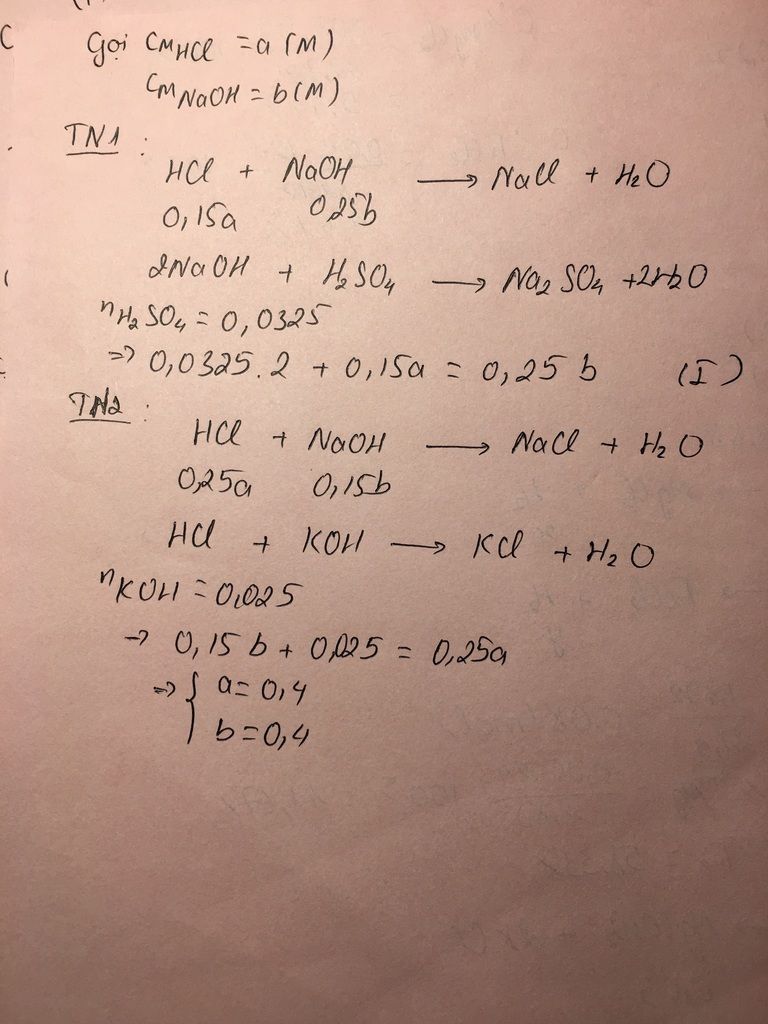 Gọi CMHCl = a (M)
CMNaOH = b (M)
TN1 :
HCl + NaOH → NaCl + H2O
0,15a 0,25b
2NaOH + H2SO4 → Na2SO4 + 2H2O
nH2SO4 = 0,0325
=> 0,0325.2 + 0,15a = 0,25 b (I)
TN2 :
HCl + NaOH → NaCl + H2O
0,25a 0,15b
HCl + KOH → KCl + H2O
nKOH = 0,025
→ 0,15 b + 0,025 = 0,25a
=> { a = 0,4
b = 0,4